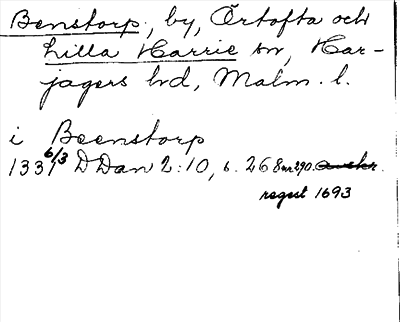 Benstorp, by, Örtofta och
Lilla Harrie snr, Har-
jagers hd, Malm. l.
i Beenstorp
1337 6/3 DDan 2:10, s. 268 nr 290.
regest 1693